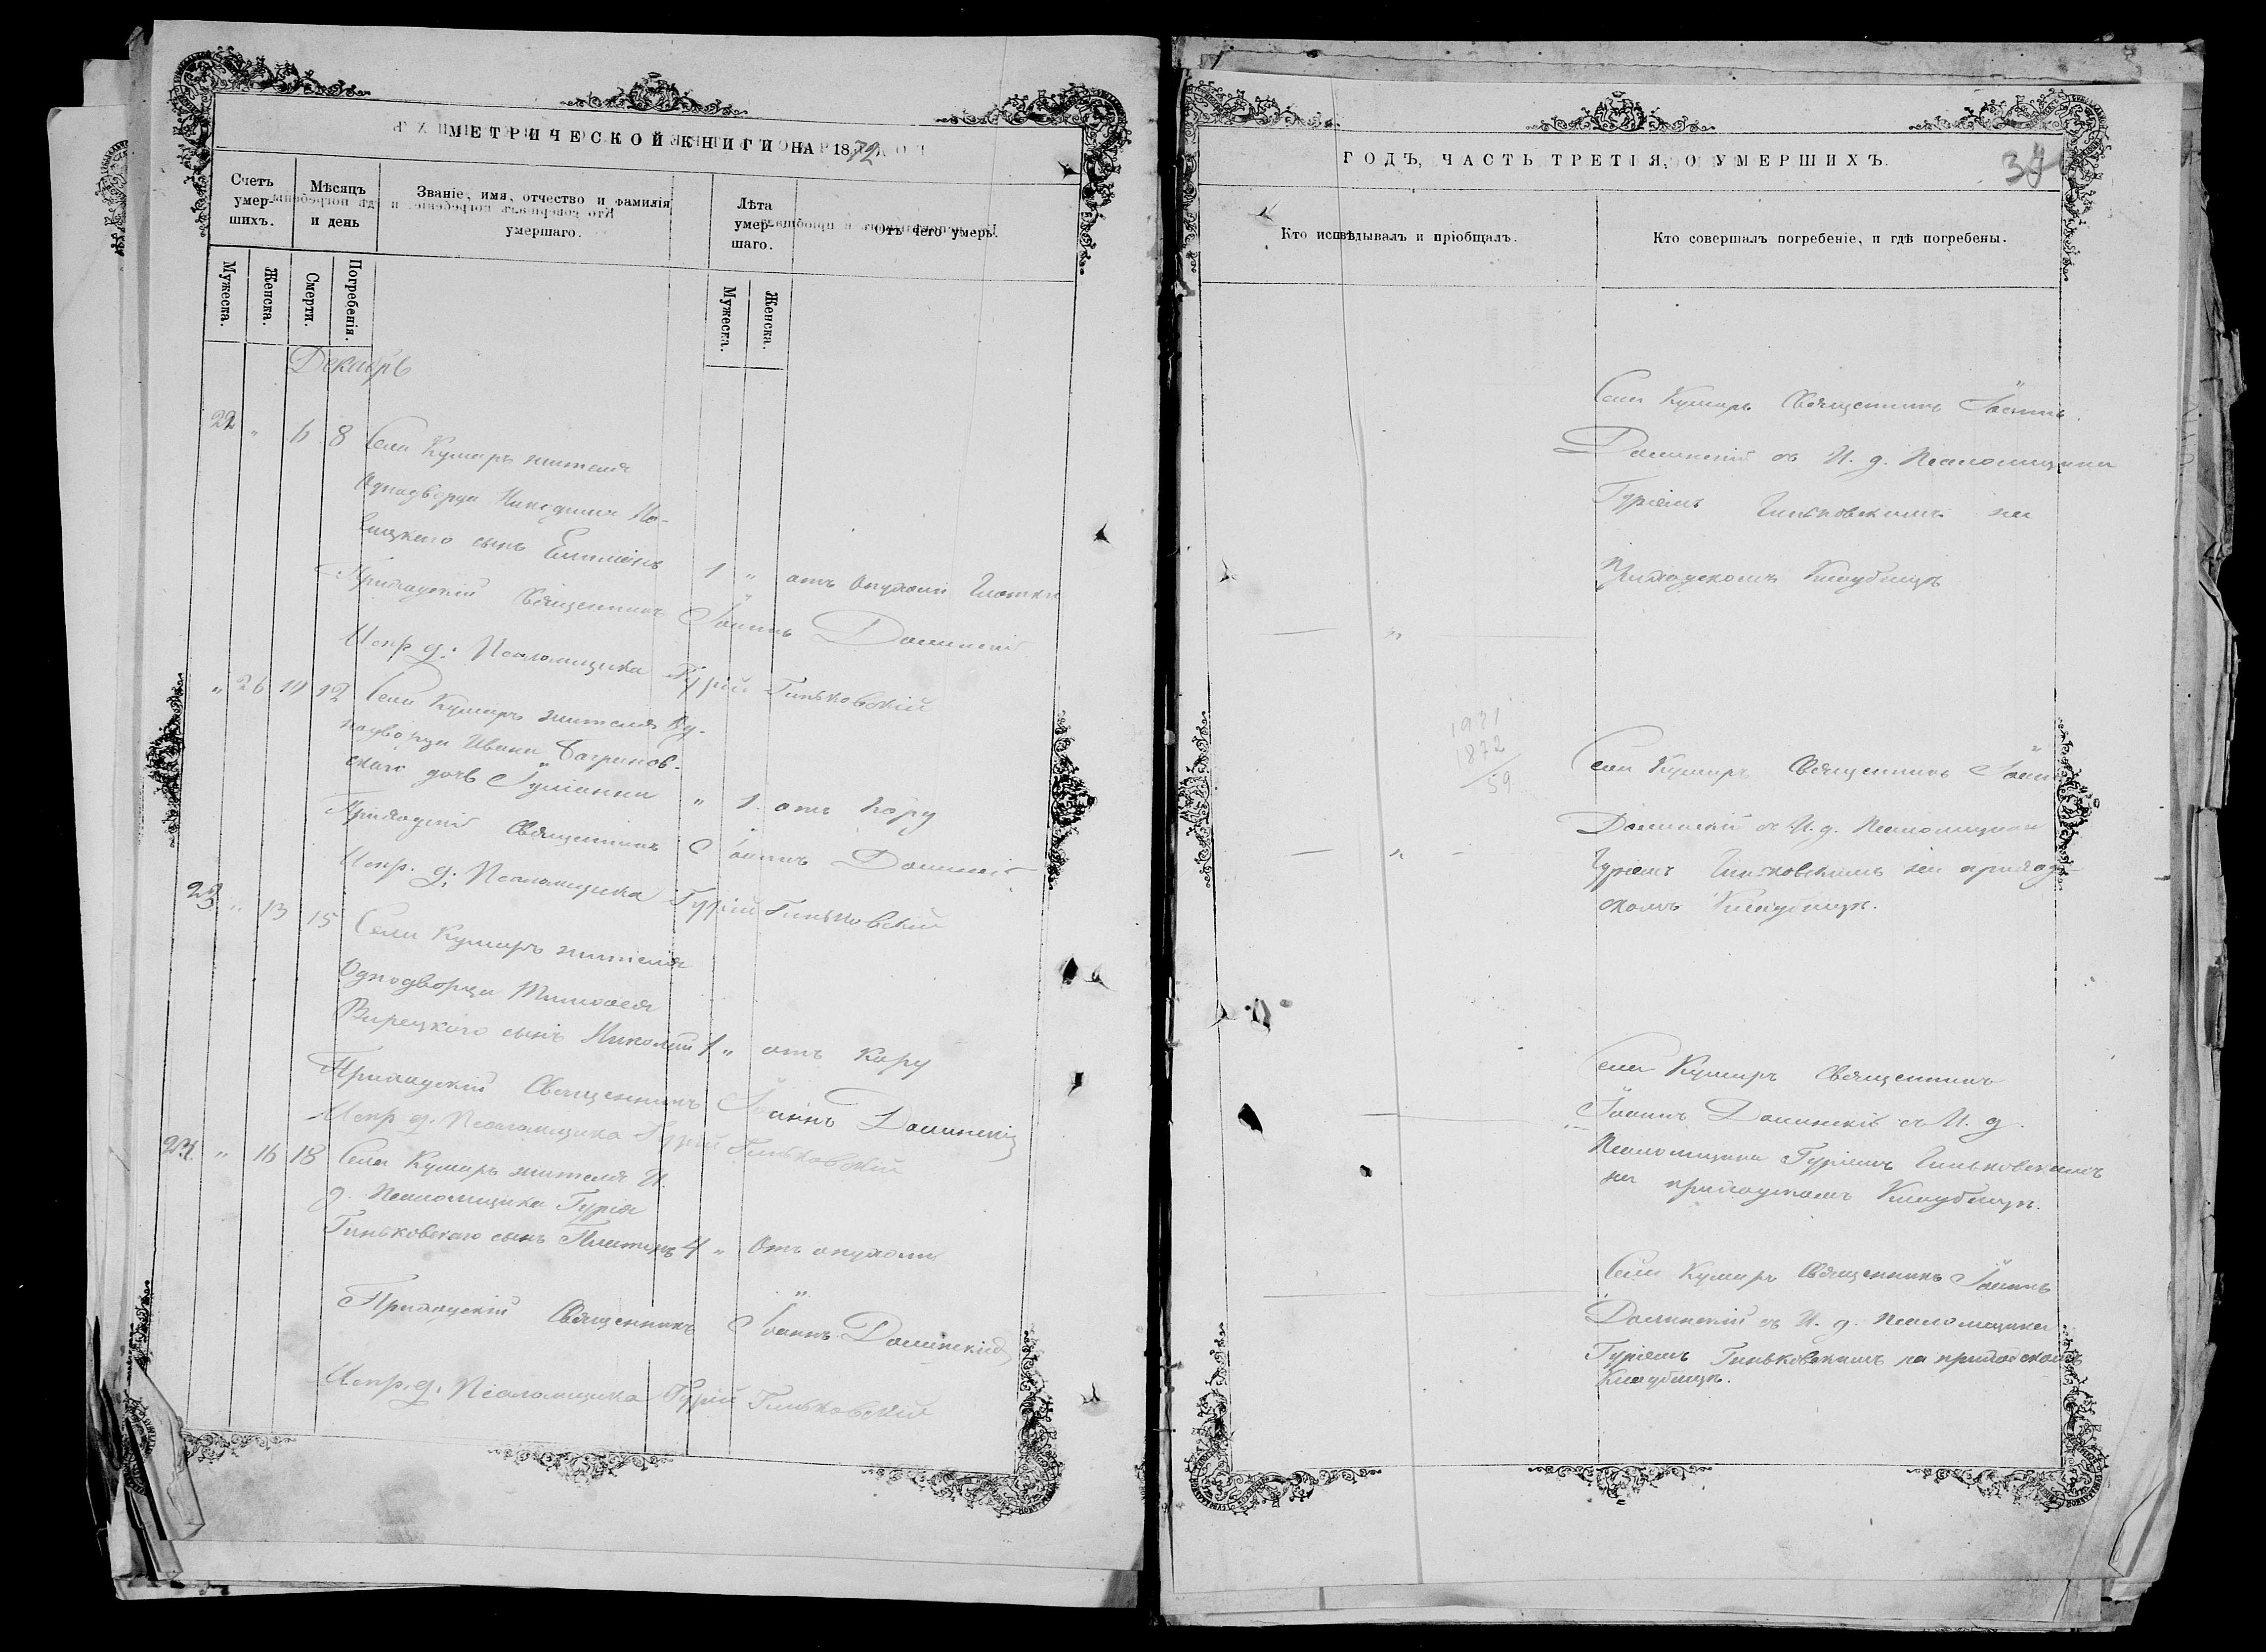 МЕТРИЧЕСКОЙ КНИГИ НА 1872
Счетъ умер-шихъ.
Мѣсяцъ и день
Званіе, имя, отчество и фамилія умершаго.
Лѣта умер-шаго.
Отъ чего умеръ.
Мужеска.
Женска.
Смерти.
Погребенія.
Мужеска.
Женска.
Декабрь
22 " 6 8 Села Кумаръ жителя
Однодворца Никодима
сынъ 1 " отъ опухоли глотки
Приходскій Священникъ Іоаннъ Долинскій
Испр. д. Псаломщика Гурій Гиньковскій
" 26 10 12 Села Кумаръ жителя Од-
нодворца Ивана Багринов-
скаго дочь Іуліанна " 1 отъ кору
Приходскій Священникъ Іоаннъ Долинскій
Испр. д. Псаломщика Гурій Гиньковскій
23 " 13 15 Села Кумаръ жителя
Однодворца Тимофея
Вирецкого сынъ Николай 1 " отъ кору
Приходскій Священникъ Іоаннъ Долинскій
Испр. д. Псаломщика Гурій Гиньковскій
24 " 16 18 Села Кумаръ жителя И.
д. Псаломщика Гурія
Гиньковскаго сынъ Платонъ 4 " Отъ опухоли
Приходскій Священникъ Іоаннъ Долинскій
Испр. д. Псаломщика Гурій Гиньковскій
ГОДЪ, ЧАСТЬ ТРЕТІЯ, О УМЕРШИХЪ.
37
Кто исповѣдывалъ и пріобщалъ.
Кто совершалъ погребеніе, и гдѣ погребены.
Села Кумаръ Священникъ Іоаннъ
Долинскій съ И. д. Псаломщика
Гуріемъ Гиньковскимъ на
Приходскомъ Кладбищѣ
"
1931
1872
59
Села Кумаръ Священникъ Іоаннъ
Долинскій съ И. д. Псаломщика
Гуріемъ Гиньковскимъ на приход-
скомъ Кладбищѣ.
"
Села Кумаръ Священникъ
Іоаннъ Долинскій съ И. д.
Псаломщика Гуріемъ Гиньковскимъ
на приходскомъ Кладбищѣ.
Села Кумаръ Священникъ Іоаннъ
Долинскій съ И. д. Псаломщика
Гуріемъ Гиньковскимъ на приходскомъ
Кладбищѣ.